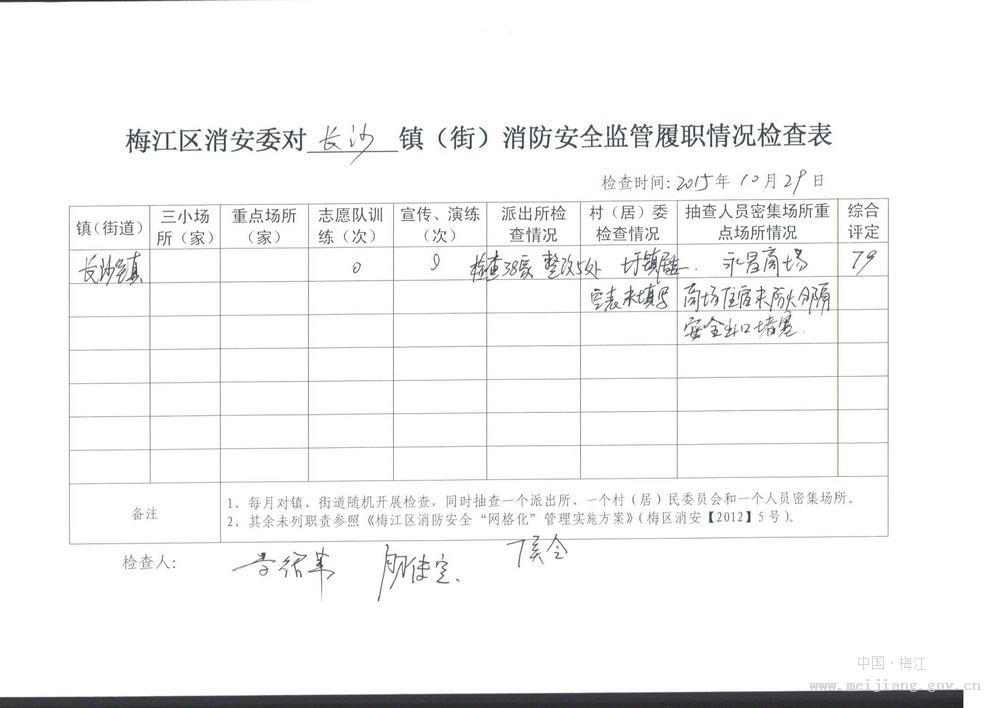 梅江区消安委对 长沙 镇（街）消防安全监管履职情况检查表
检查时间: 2015年 10月 29日
镇（街道） 三小场所（家） 重点场所（家） 志愿队训练（次） 宣传、演练（次） 派出所检查情况 村（居）委检查情况 抽查人员密集场所重点场所情况 综合评定
长沙镇 0 9 检查38家 整改5处 圩镇居委. 永昌商场 79
空表未填写 商场住宿未防火分隔
安全出口堵塞.
备注
1、每月对镇、街道随机开展检查，同时抽查一个派出所、一个村（居）民委员会和一个人员密集场所。
2、其余未列职责参照《梅江区消防安全“网格化”管理实施方案》（梅区消安【2012】5号）。
检查人:
中国·梅江
www.meijiang.gov.cn